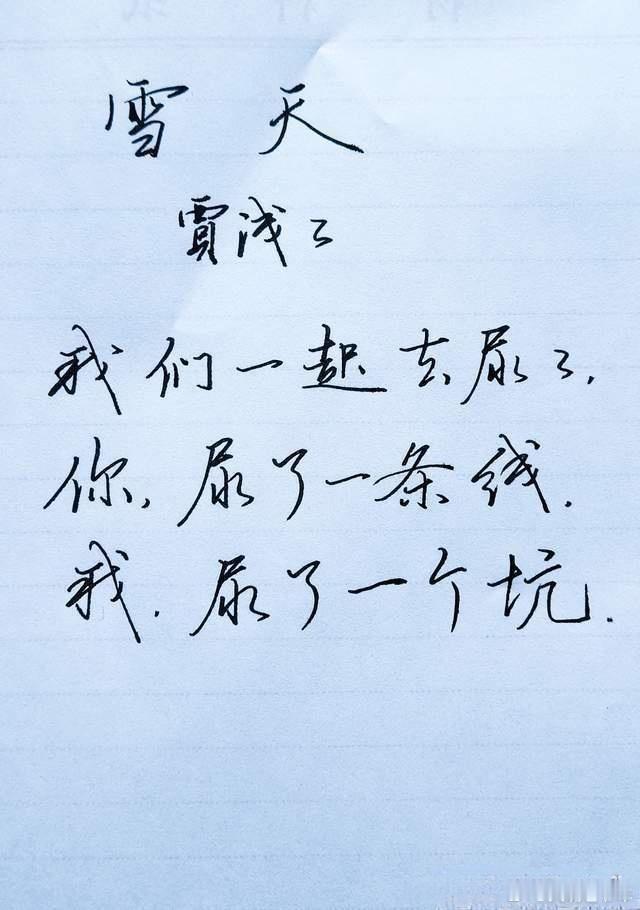 雪天
贾浅之
我们一起去尿尿,
你,尿了一条线.
我.尿了一个坑.